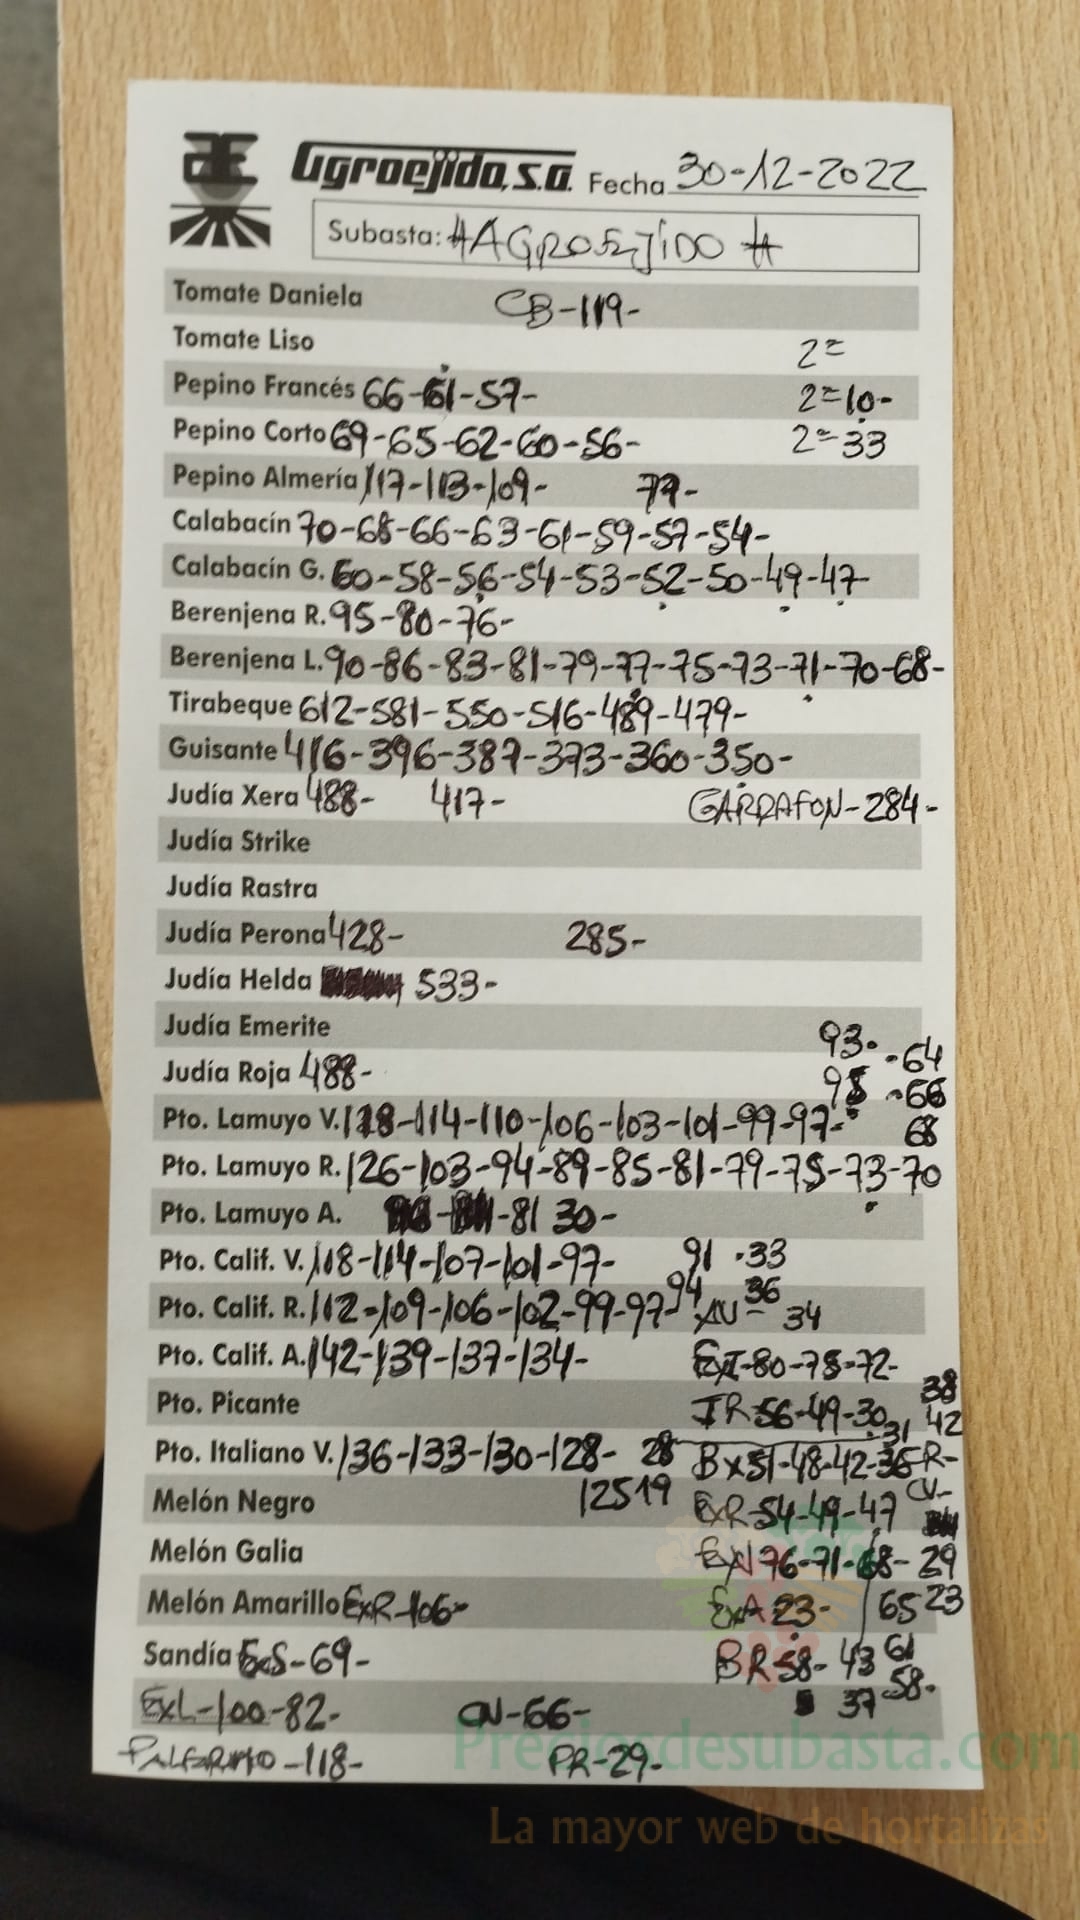 Agroejido, S.A. Fecha 30-12-2022
Subasta: #AGROEJIDO#
Tomate Daniela CB-119-
Tomate Liso 2=
Pepino Francés 66-61-57- 2=10-
Pepino Corto 69-65-62-60-56- 2=33
Pepino Almería 117-113-109- 77-
Calabacín 70-68-66-63-61-59-57-54-
Calabacín G. 60-58-56-54-53-52-50-49-47-
Berenjena R. 95-80-76-
Berenjena L. 90-86-83-81-79-77-75-73-71-70-68-
Tirabeque 612-581-550-516-489-479-
Guisante 416-396-387-373-360-350-
Judía Xera 488- 417- GARRAFON-284-
Judía Strike
Judía Rastra
Judía Perona 428- 285-
Judía Helda 533-
Judía Emerite 93. -64
Judía Roja 488- 95 -66
Pto. Lamuyo V. 118-114-110-106-103-101-99-97- 68
Pto. Lamuyo R. 126-103-94-89-85-81-79-75-73-70
Pto. Lamuyo A. -81 30-
Pto. Calif. V. 118-114-107-101-97- 91 -33
Pto. Calif. R. 112-109-106-102-99-97-94 AV- 36 34
Pto. Calif. A. 142-139-137-134- ExI-80-75-72-
Pto. Picante IR-56-49-30 31 38 42
Pto. Italiano V. 136-133-130-128- 28 Bx51-48-42-36 FR-
Melón Negro 125 19 ExR-54-49-47 CV-
Melón Galia ExN 76-71-68- 29
Melón Amarillo ExR-106- ExA 23- 65 23
Sandía ExS-69- BR-58- 43 61
ExL-100-82- CN-66- 37 58-
PALERMO-118- PR-29-
Preciosdesubasta.com
La mayor web de hortalizas